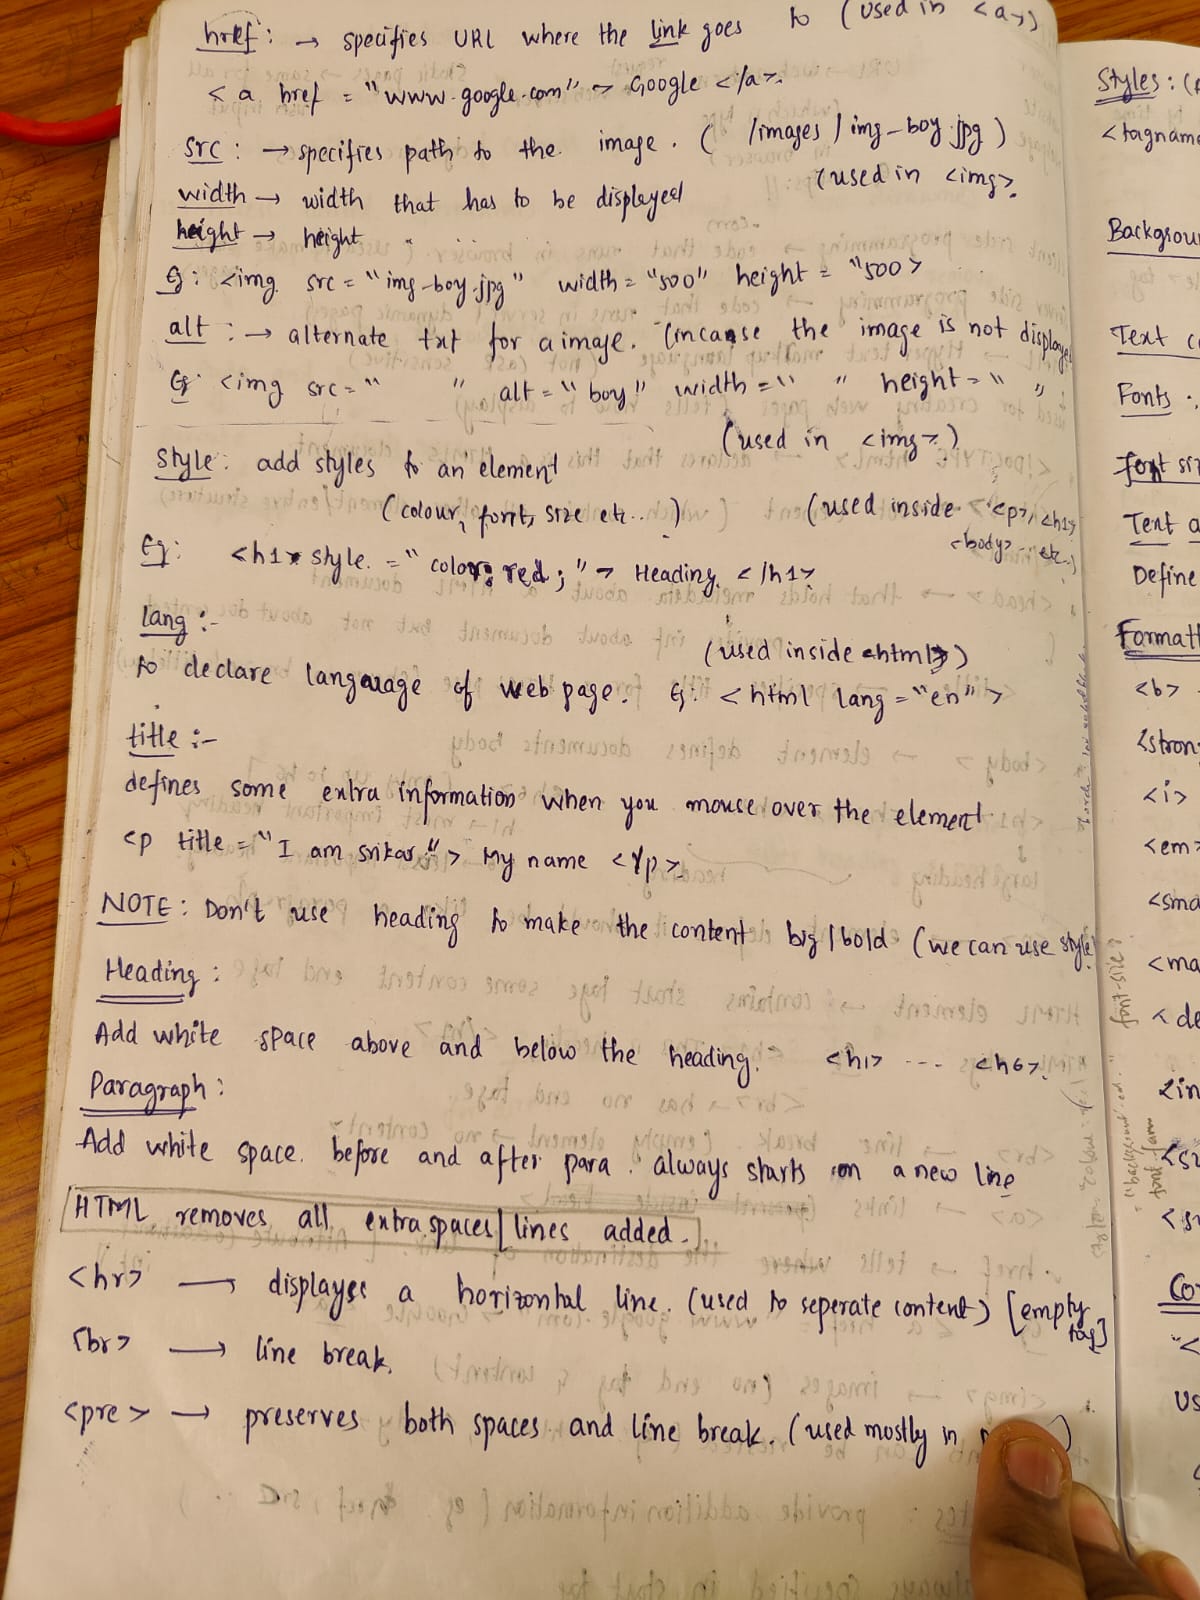 href : → specifies URL where the link goes to (used in <a>)
<a href = "www.google.com"> Google </a>.
src : → specifies path to the image. ( /images/img-boy.jpg )
(used in <img>.
width → width that has to be displayed
height → height "
Eg: <img src = "img-boy.jpg" width = "500" height = "500>
alt : → alternate txt for a image. (incanse the image is not displayed
Eg: <img src = " " alt = "boy" width = " " height = " "
(used in <img>.)
Style: add styles to an element
(colour, font, size etc...) (used inside <p>, <h1>
<body> - etc.)
Eg: <h1 style = "color: red;"> Heading </h1>
lang :-
(used inside <html>)
to declare langauage of web page. Eg: <html lang = "en">
title :-
defines some extra information when you mouse over the element.
<p title = "I am srikar"> My name </p>.
NOTE: Don't use heading to make the content big/bold (we can use style
Heading :
Add white space above and below the heading. <h1> --- <h6>.
Paragraph :
Add white space. before and after para. always starts on a new line
HTML removes all extra spaces/lines added.
<hr> → displayes a horizontal line. (used to seperate content) [empty
tag]
<br> → line break.
<pre> → preserves both spaces and line break. (used mostly in
Styles : (
<tagname
Backgrou
Text c
Fonts :
font si
Text a
Define
Formatt
<b>
<stron
<i>
<em>
<sma
<ma
<de
<in
<su
<s
Co
"<
Us
font-size: